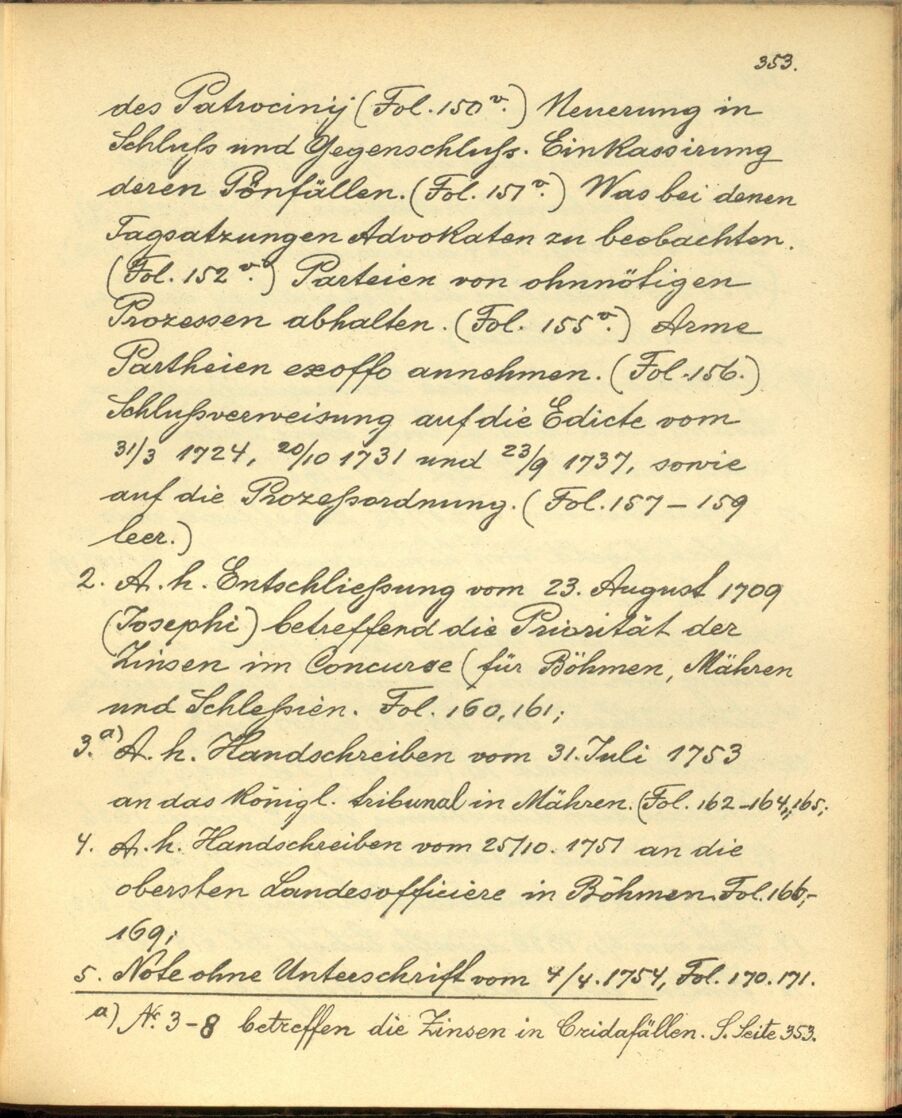 353.
des Patrocinij (Fol. 150 v.) Neuerung in
Schluß und Gegenschluß. Einkassirung
deren Pönfällen. (Fol. 151 v.) Was bei denen
Tagsatzungen Advokaten zu beobachten.
(Fol. 152 v.) Parteien von ohnnötigen
Prozessen abhalten. (Fol. 155 v.) Arme
Partheien exoffo annehmen. (Fol. 156.)
Schlußverweisung auf die Edicte vom
31/3 1724, 20/10 1731 und 23/9 1737, sowie
auf die Prozeßordnung. (Fol. 157 – 159
leer.)
2. A. h. Entschließung vom 23. August 1709
(Josephi) betreffend die Priorität der
Zinsen im Concurse (für Böhmen, Mähren
und Schleßien. Fol. 160, 161;
3. a) A. h. Handschreiben vom 31. Juli 1753
an das königl. tribunal in Mähren. (Fol. 162–164, 165;
4. A. h. Handschreiben vom 25/10. 1751 an die
obersten Landesofficiere in Böhmen. Fol. 166,–
169;
5. Note ohne Unterschrift vom 4/4. 1754, Fol. 170. 171.
a) No. 3–8 betreffen die Zinsen in Cridafällen. S. Seite 353.